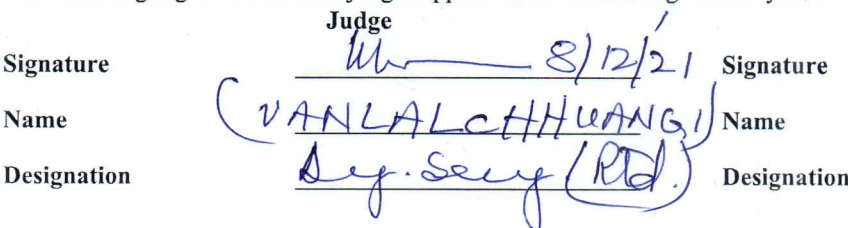 Judge
Signature 8/12/21 Signature
Name (VANLALCHHUANGI) Name
Designation Dy. Secy (Rtd.) Designation